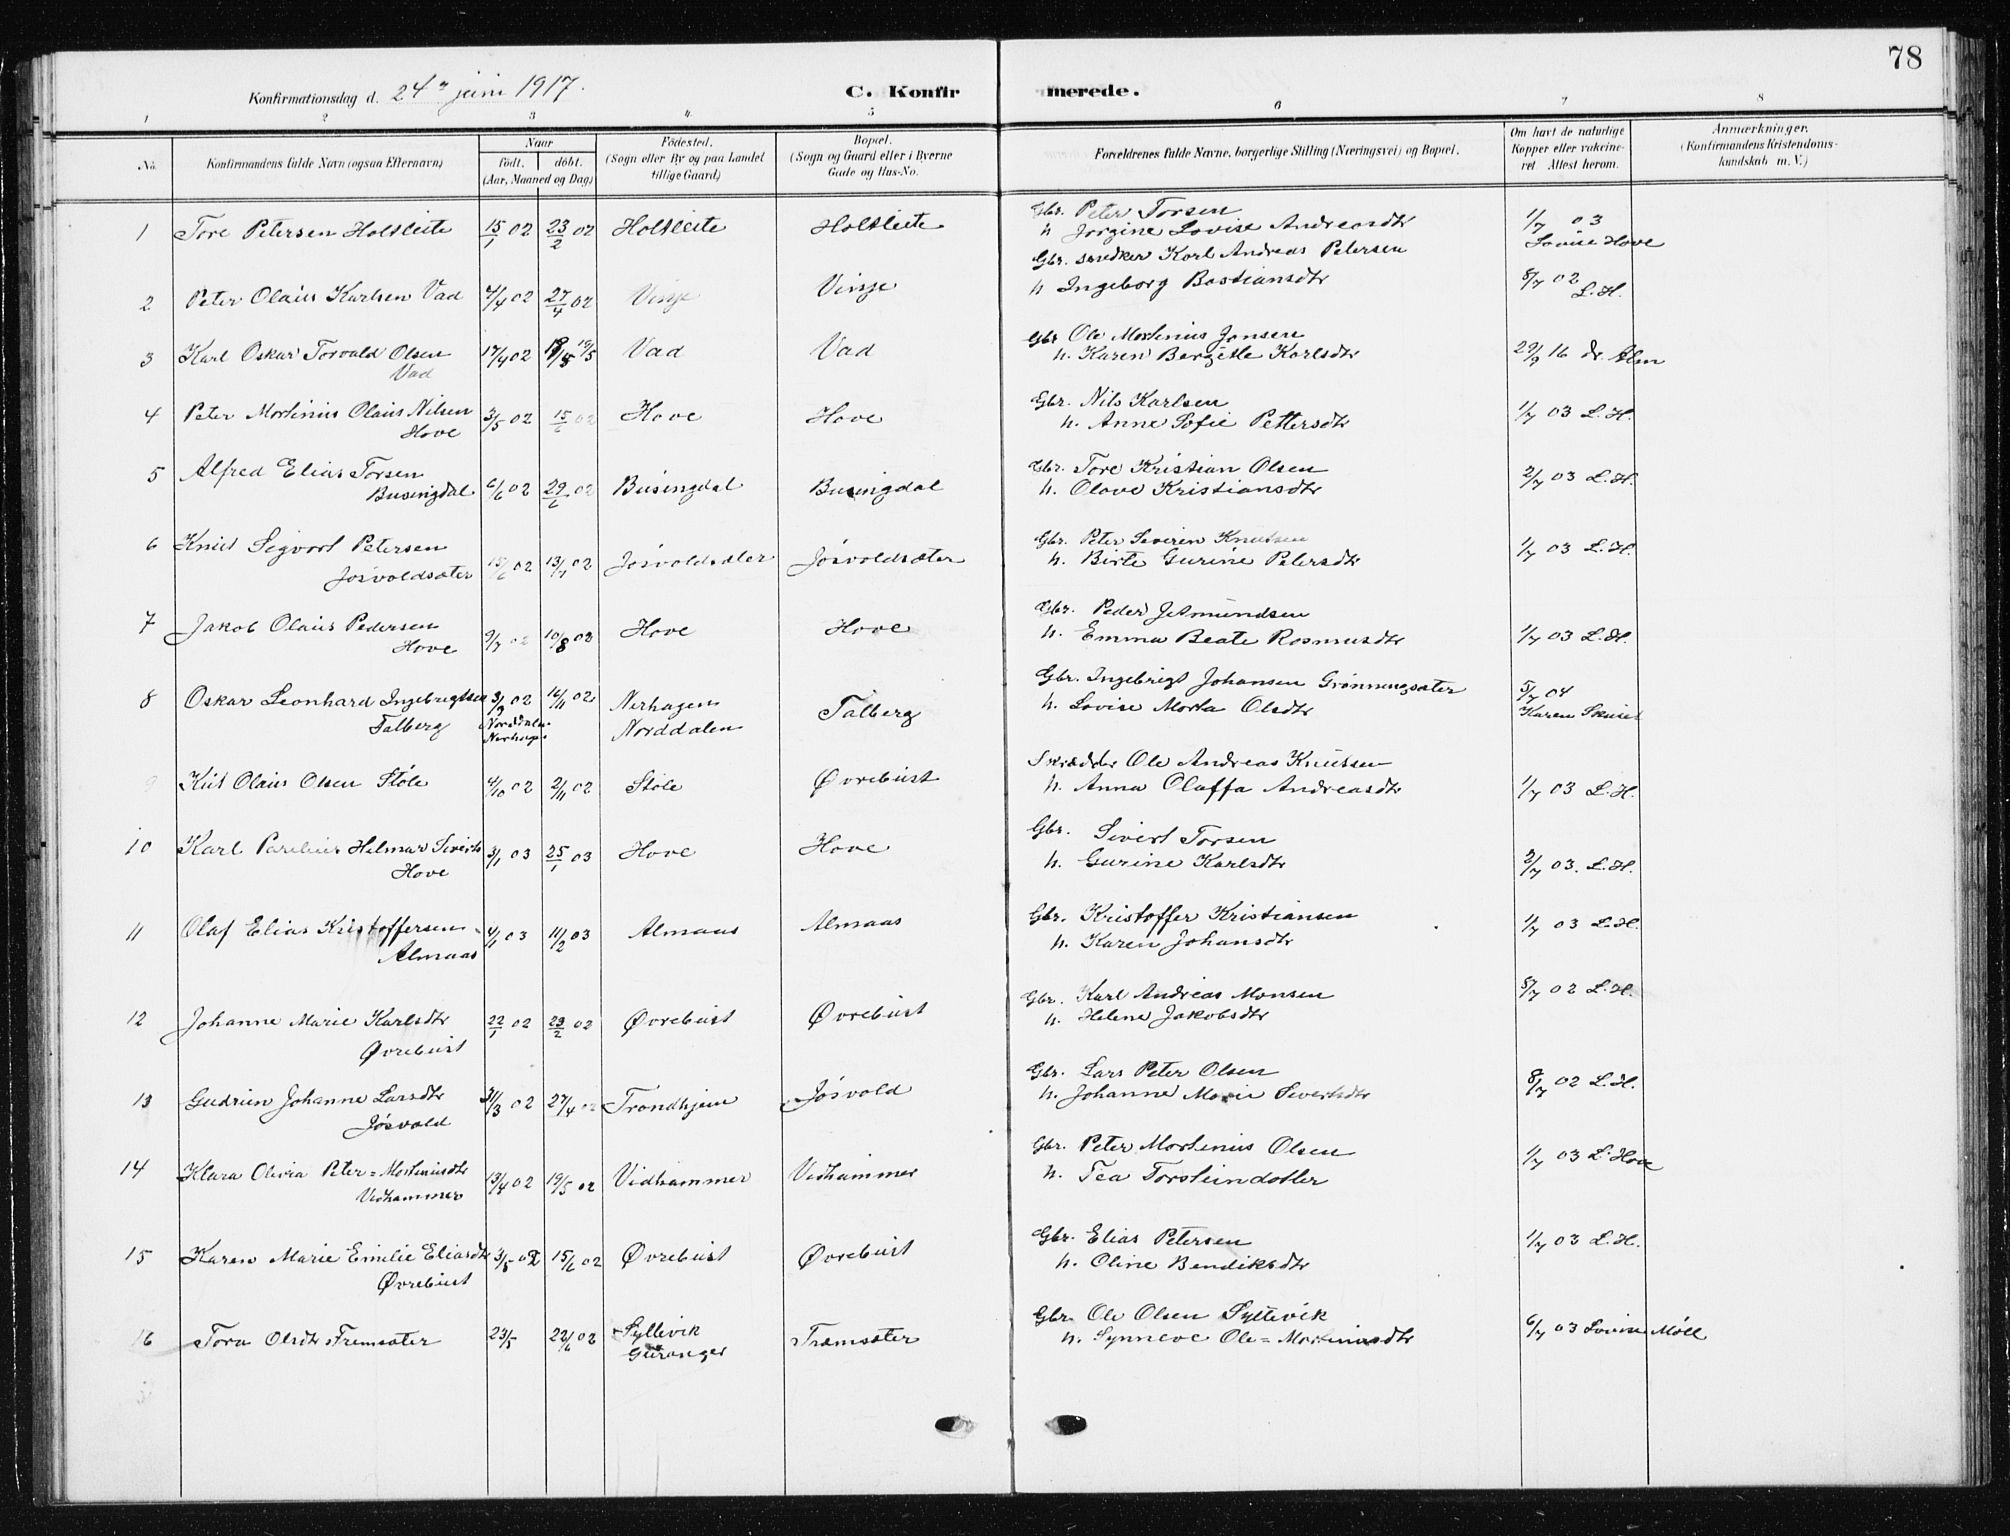 78
Konfirmationsdag d. 24de juni 1917. C. Konfirmerede.
1 2 3 4 5 6 7 8
No. Konfirmandens fulde Navn (ogsaa Efternavn) Naar født. døbt. (Aar, Maaned og Dag) Födested. (Sogn eller By og paa Landet tillige Gaard) Bopæl. (Sogn og Gaard eller i Byerne Gade og Hus-No. Forældrenes fulde Navne, borgerlige Stilling (Næringsvei) og Bopæl. Om havt de naturlige Kopper eller vakcineret. Attest herom. Anmærkninger. (Konfirmandens Kristendomskundskab m. V.)
1 Tore Petersen Holtleite 15/1 02 23/2 02 Holtleite Holtleite Gbr. Peter Torsen 1/7 03
h Jorgine Lovise Andreasdtr Lovise Hove
2 Peter Olaus Karlsen Vad 4/4 02 27/4 02 Vinje Vinje Gbr. snedker Karl Andreas Petersen 8/7 02
h Ingeborg Bastiansdtr L. H.
3 Karl Oskar Torvald Olsen 17/4 02 19/5 Vad Vad Gbr Ole Martinius Jonsen 29/9 16 dr. Alm
Vad h. Karen Bergitte Karlsdtr
4 Peter Martinius Olaus Nilsen 3/5 02 15/6 02 Hove Hove Gbr. Nils Karlsen 1/7 03 L. H.
Hove h. Anne Sofie Pettersdtr
5 Alfred Elias Torsen 6/6 02 29/6 02 Busingdal Busingdal Gbr. Tore Kristian Olsen 2/7 03 L. H.
Busingdal h. Olave Kristiansdtr
6 Knut Sigvart Petersen 15/6 02 13/7 02 Jøsvoldsæter Jøsvoldsæter Gbr. Peter Severin Knutsen 1/7 03 L. H.
Jøsvoldsæter h. Birte Gurine Petersdtr
7 Jakob Olaus Pedersen 9/7 02 10/8 02 Hove Hove Gbr. Peder Jetmundsen
Hove h. Emma Beate Rasmusdtr 1/7 03 L. H.
8 Oskar Leonhard Ingebrigtsen 3/9 02 16/11 02 Nerhagen Talberg Gbr. Ingebrigt Johansen Grönningsæter 5/7 04
Talberg Norddalen Nerhagen Norddalen h. Lovise Marta Olsdtr Karen
9 Knut Olaus Olsen Støle 4/10 02 2/11 02 Støle Øvrebust Skrædder Ole Andreas Knutsen
h. Anna Olaffa Andreasdtr 1/7 03 L. H.
10 Karl Parelius Hilmar Siverts 3/1 03 25/1 03 Hove Hove Gbr. Sivert Torsen
Hove h. Gurine Karlsdtr 2/7 03. L. H.
11 Olaf Elias Kristoffersen 4/1 03 11/2 03 Almaas Almaas Gbr. Kristoffer Kristiansen 1/7 03 L. H.
Almaas h. Karen Johansdtr
12 Johanne Marie Karlsdtr 22/1 02 23/2 02 Øvrebust Øvrebust Gbr. Karl Andreas Monsen 5/7 02 L. H.
Øvrebust h. Helene Jakobsdtr
13 Gudrun Johanne Larsdtr 31/3 02 27/4 02 Trondhjem Jøsvold Gbr. Lars Peter Olsen 8/7 02 L. H.
Jøsvold h. Johanne Marie Severtsdtr
14 Klara Olivia Peter=Martinusdtr 13/4 02 19/5 02 Vidhammer Vidhammer Gbr. Peter Martinus Olsen 1/7 03 L. Hove
Vidhammer h. Tea Torsteindotter
15 Karen Marie Emilie Eliasdtr 3/5 02 15/6 02 Øvrebust Øvrebust Gbr. Elias Petersen 1/7 03 L. H.
Øvrebust h. Oline Bendiksdtr
16 Tora Olsdtr Fremsæter 23/5 22/6 02 Syltevik Framsæter Gbr. Ole Olsen Syltevik 6/7 03 Lovise Möll
Geiranger h. Synneve Ole=Martinusdtr